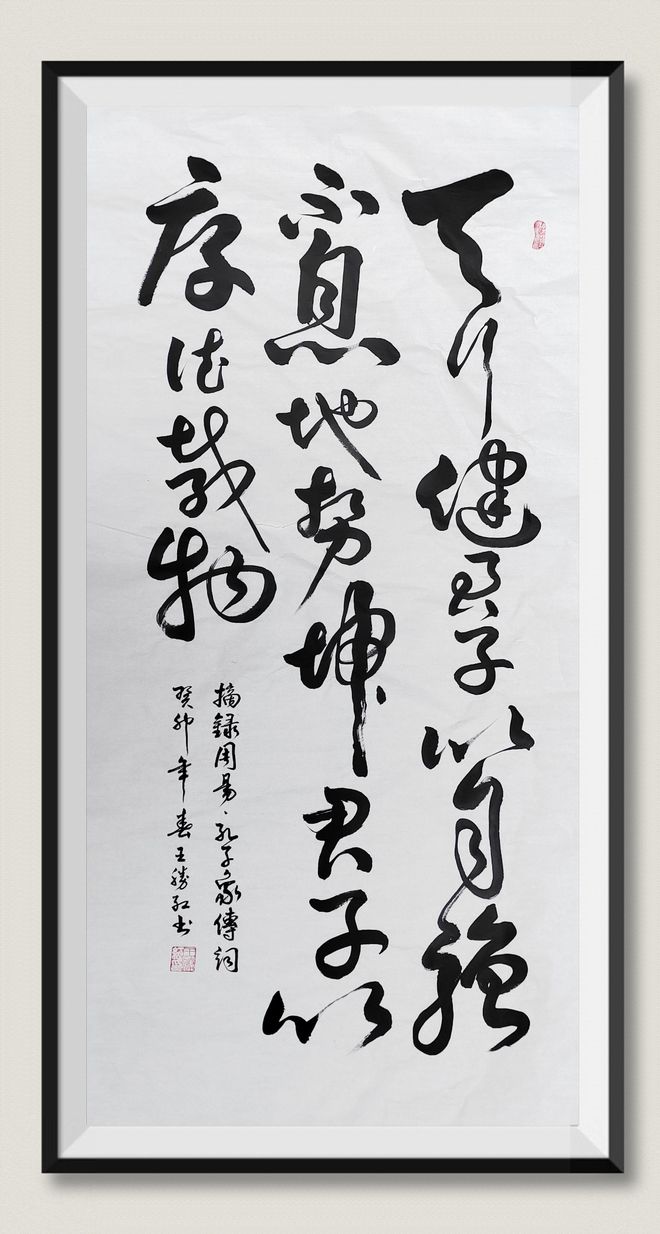 天行健君子以自強
不息地势坤君子以
厚德载物
摘録周易·孔子象傳詞
癸卯年春王勝紅书